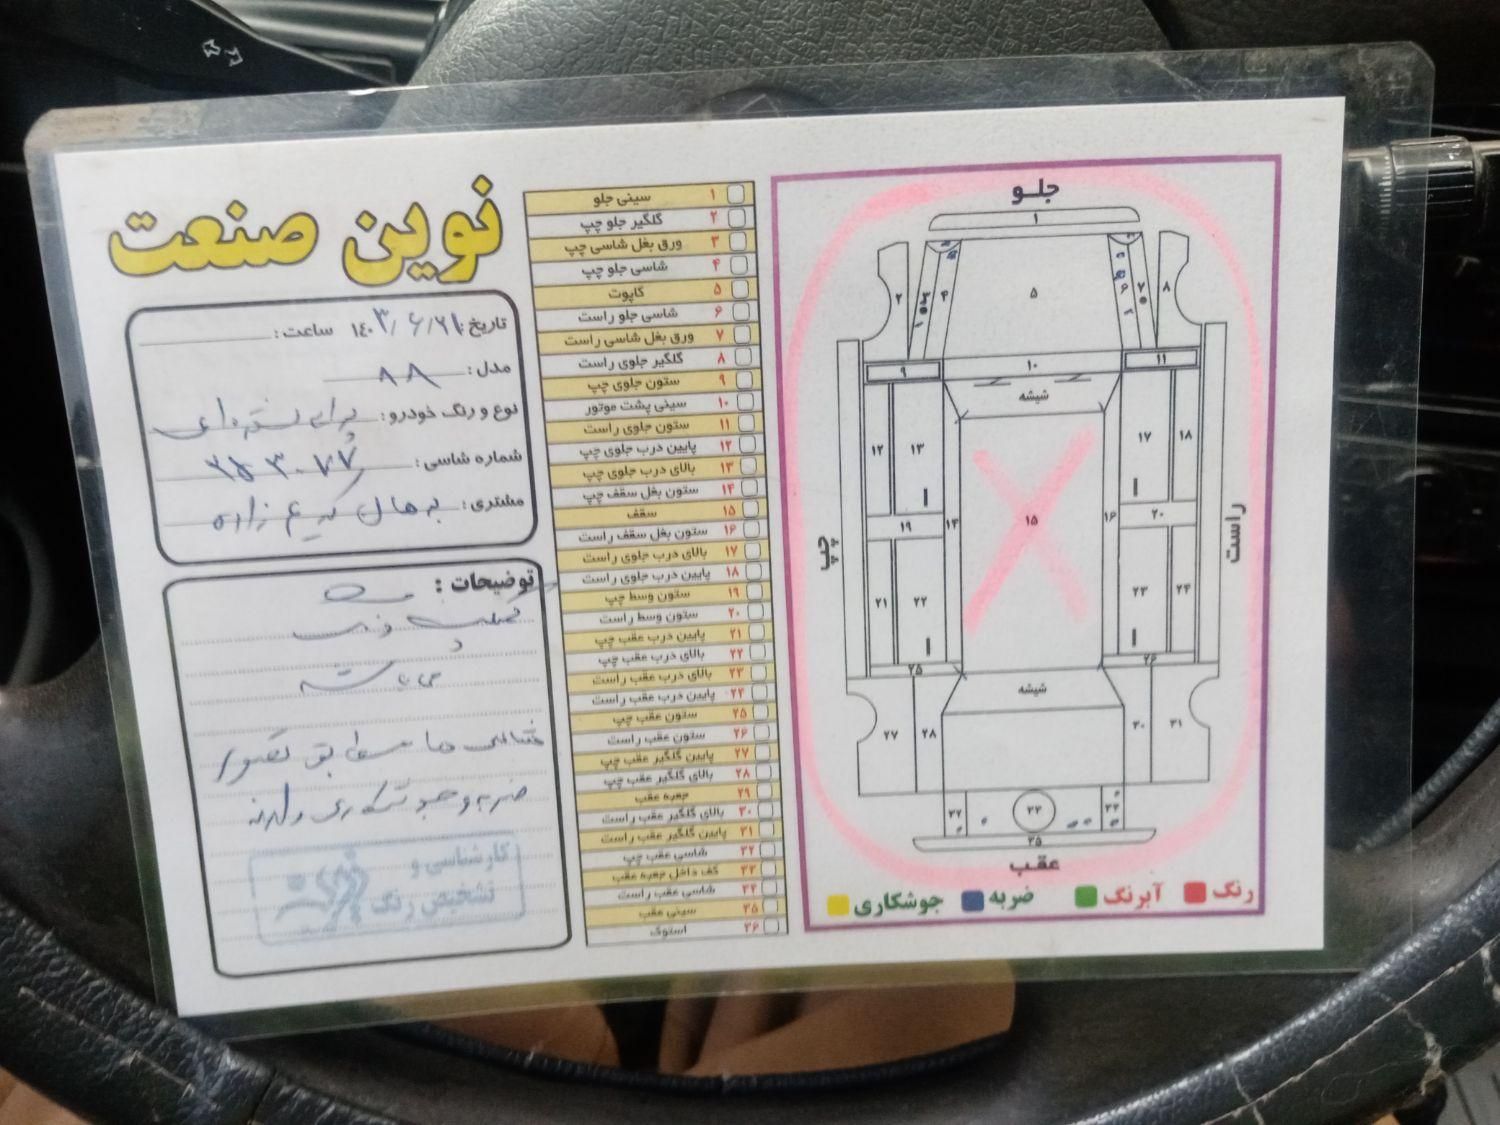 نوین صنعت
تاریخ: ۱۴۰۳/۶/۲۱ ساعت:
مدل: ۸۸
نوع و رنگ خودرو:
شماره شاسی:
مشتری:
توضیحات:
می باشد
شاسی ها مطابق تصویر
ضربه و
کارشناسی و
تشخیص رنگ
۱ سینی جلو
۲ گلگیر جلو چپ
۳ ورق بغل شاسی چپ
۴ شاسی جلو چپ
۵ کاپوت
۶ شاسی جلو راست
۷ ورق بغل شاسی راست
۸ گلگیر جلوی راست
۹ ستون جلوی چپ
۱۰ سینی پشت موتور
۱۱ ستون جلوی راست
۱۲ پایین درب جلوی چپ
۱۳ بالای درب جلوی چپ
۱۴ ستون بغل سقف چپ
۱۵ سقف
۱۶ ستون بغل سقف راست
۱۷ بالای درب جلوی راست
۱۸ پایین درب جلوی راست
۱۹ ستون وسط چپ
۲۰ ستون وسط راست
۲۱ پایین درب عقب چپ
۲۲ بالای درب عقب چپ
۲۳ بالای درب عقب راست
۲۴ پایین درب عقب راست
۲۵ ستون عقب چپ
۲۶ ستون عقب راست
۲۷ پایین گلگیر عقب چپ
۲۸ بالای گلگیر عقب چپ
۲۹ جعبه عقب
۳۰ بالای گلگیر عقب راست
۳۱ پایین گلگیر عقب راست
۳۲ شاسی عقب چپ
۳۳ کف داخل جعبه عقب
۳۴ شاسی عقب راست
۳۵ سینی عقب
۳۶ استوک
جلو
۱
۲ ۴ ۵ ۶ ۷ ۸
۹ ۱۰ ۱۱
شیشه
۱۲ ۱۳ ۱۷ ۱۸
۱۹ ۱۴ ۱۵ ۱۶ ۲۰
چپ
راست
۲۱ ۲۲ ۲۳ ۲۴
۲۵ ۲۶
شیشه
۲۷ ۲۸ ۳۰ ۳۱
۳۲ ۳۳ ۳۴
۳۵
عقب
رنگ آبرنگ ضربه جوشکاری